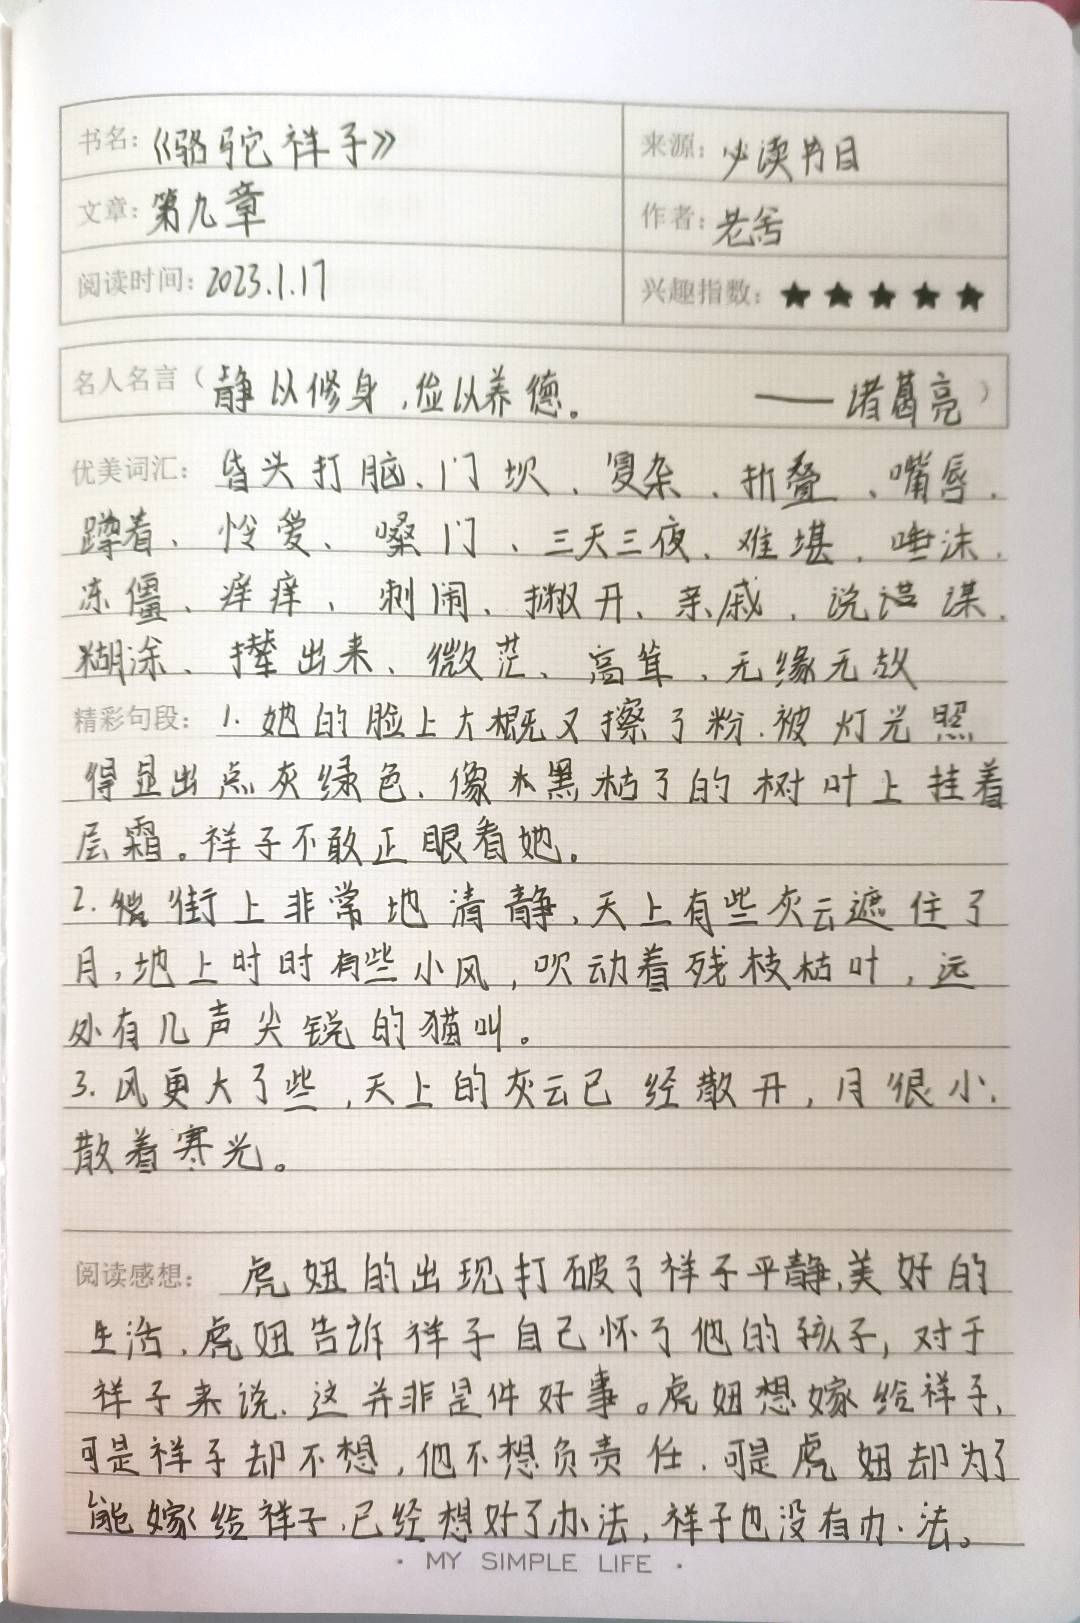 书名：《骆驼祥子》 来源：必读书目
文章：第九章 作者：老舍
阅读时间：2023.1.17 兴趣指数：★★★★★
名人名言（静以修身，俭以养德。——诸葛亮）
优美词汇：昏头打脑、门坎、复杂、折叠、嘴唇、
蹲着、怜爱、嗓门、三天三夜、难堪、唾沫、
冻僵、痒痒、刺闹、撇开、亲戚、说
糊涂、撵出来、微茫、高耸、无缘无故
精彩句段：1.她的脸上大概又擦了粉，被灯光照
得显出点灰绿色，像黑枯了的树叶上挂着
层霜。祥子不敢正眼看她。
2.街上非常地清静，天上有些灰云遮住了
月，地上时时有些小风，吹动着残枝枯叶，远
处有几声尖锐的猫叫。
3.风更大了些，天上的灰云已经散开，月很小，
散着寒光。
阅读感想：虎妞的出现打破了祥子平静，美好的
生活，虎妞告诉祥子自己怀了他的孩子，对于
祥子来说，这并非是件好事。虎妞想嫁给祥子，
可是祥子却不想，他不想负责任，可是虎妞却为了
能嫁给祥子，已经想好了办法，祥子也没有办法。
· MY SIMPLE LIFE ·